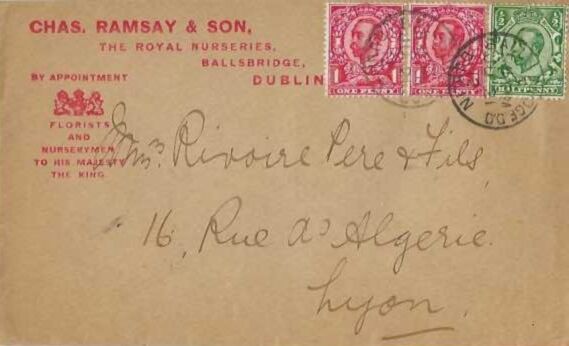 CHAS. RAMSAY & SON,
THE ROYAL NURSERIES,
BALLSBRIDGE,
DUBLIN
BY APPOINTMENT
FLORISTS
AND
NURSERYMEN
TO HIS MAJESTY
THE KING.
1 1
ONE PENNY ONE PENNY
1/2 1/2
HALFPENNY
Mrs Rivoire Pere & Fils,
16, Rue d'Algerie.
Lyon.